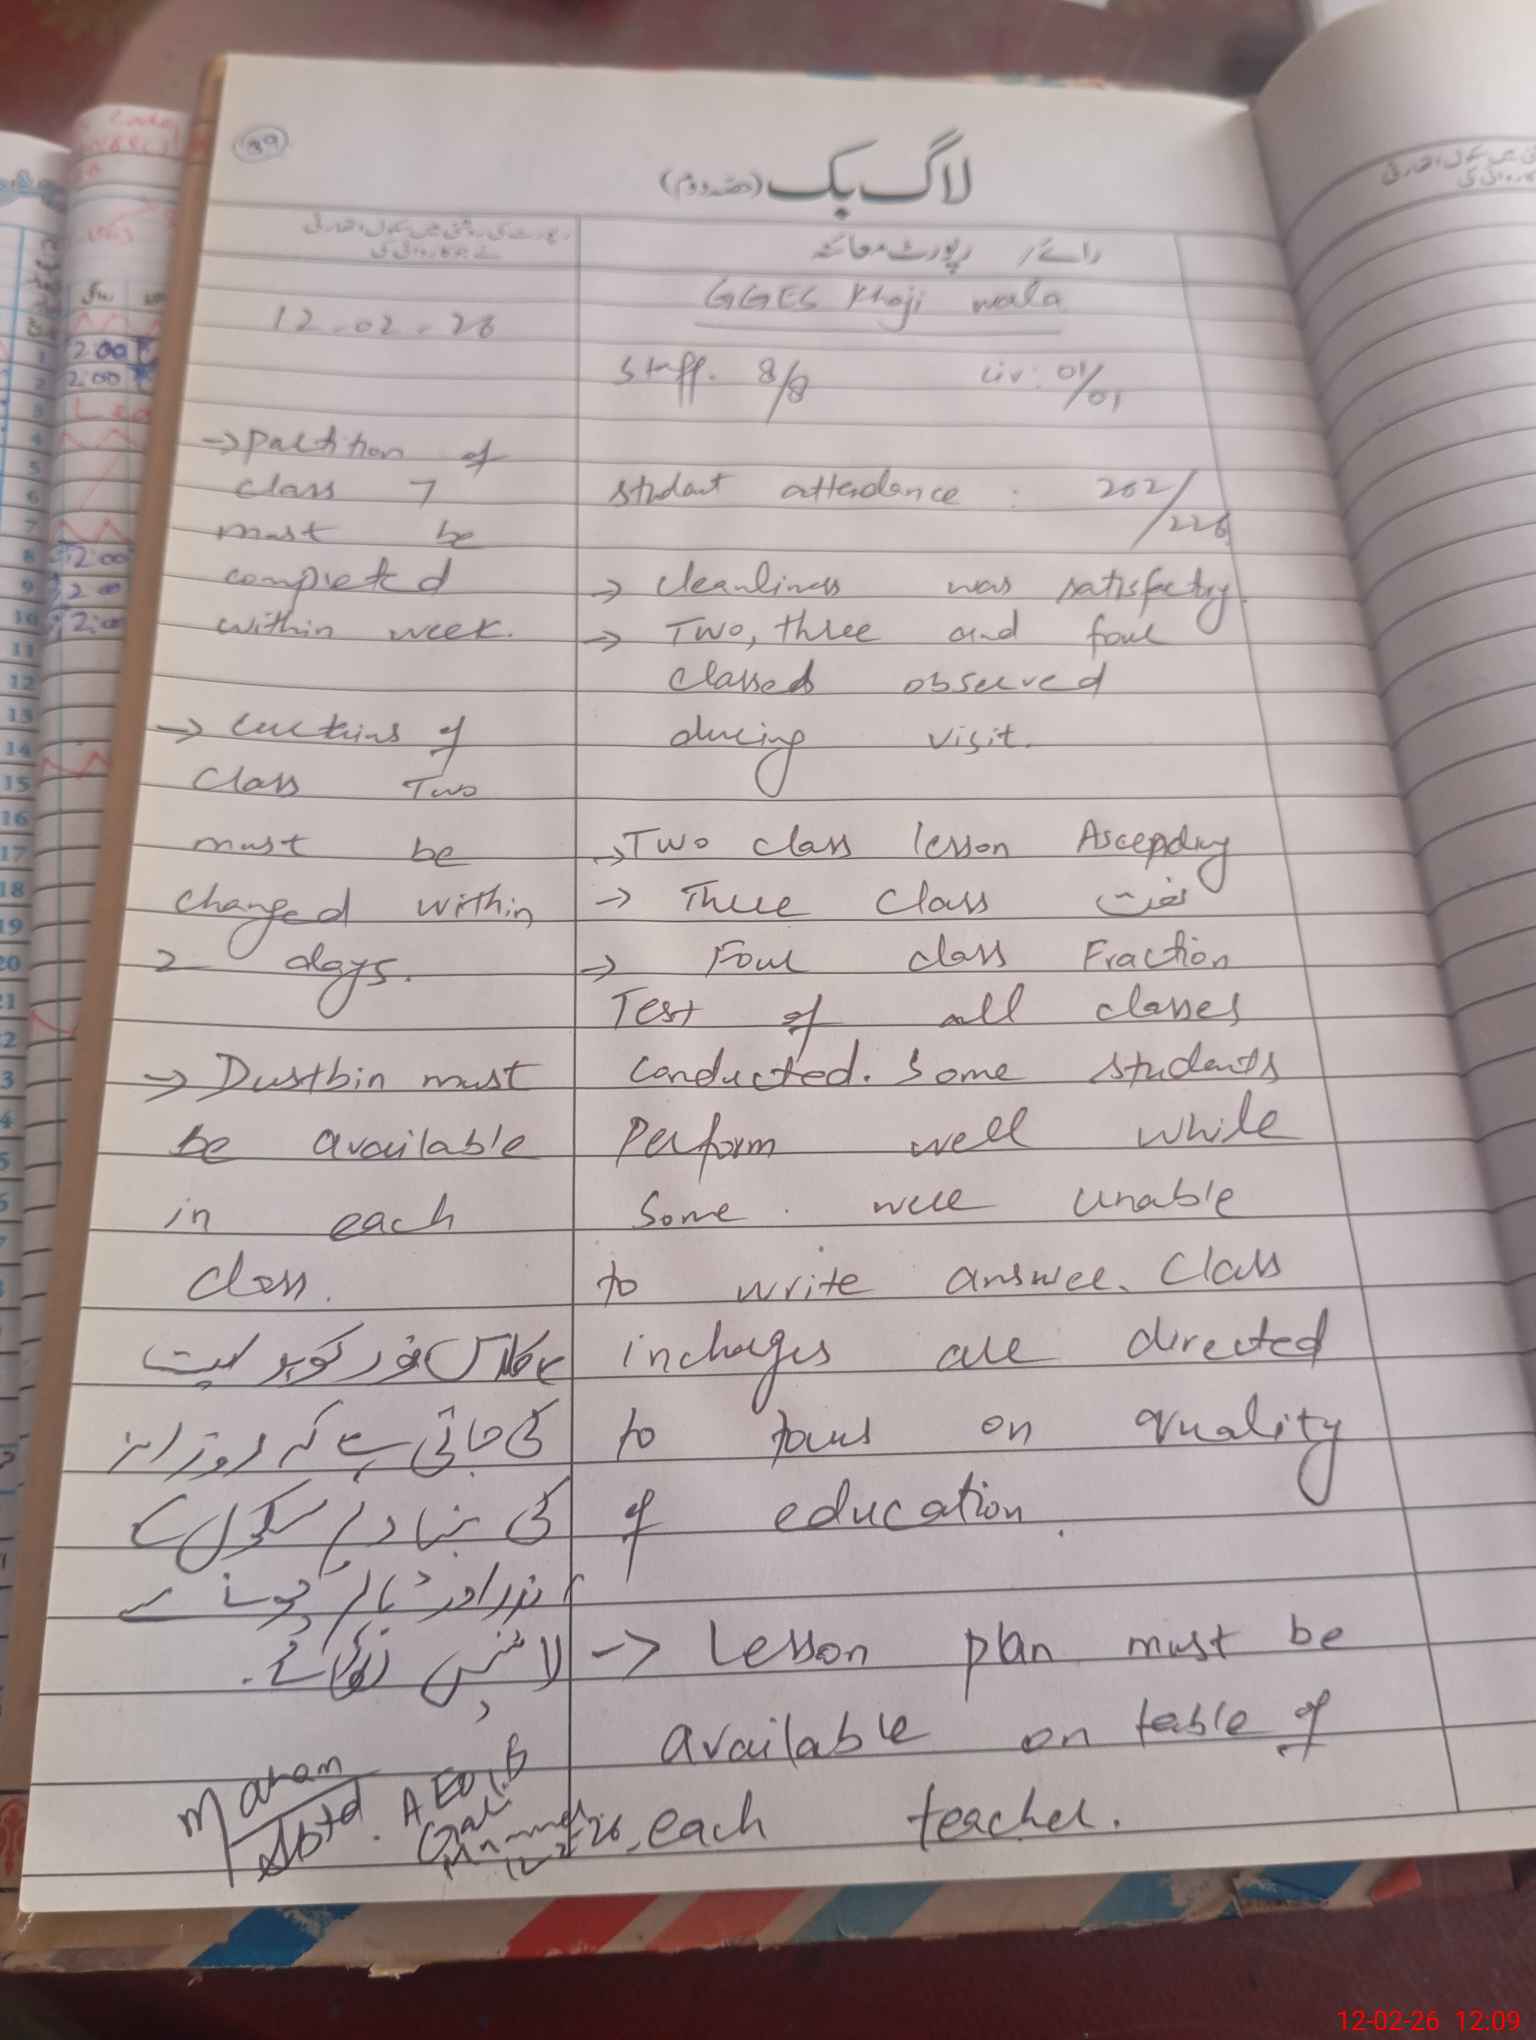 39
لاگ بک (حصہ دوم)
رپورٹ کی روشنی میں سکول اتھارٹی
نے جو کاروائی کی
رائے / رپورٹ معائنہ
12-02-26
GGES Khoji wala
Staff. 8/8 Civ: 01/01
student attendance : 202/226
→ cleanliness was satisfactry.
→ Two, three and four
classed observed
during visit.
→ Two class lesson Ascending
→ Three class نعت
→ Four class Fraction
Test of all classes
conducted. Some students
perform well while
Some were unable
to write answer. Class
incharges are directed
to focus on quality
of education.
→ Lesson plan must be
available on table of
each teacher.
→ partition of
class 7
must be
completed
within week.
→ curtains of
Class Two
must be
changed within
2 days.
→ Dustbin must
be available
in each
class.
کلاس فور کو ہدایت
کی جاتی ہے کہ روزانہ
کی بنیاد پر سکول کے
اندر اور باہر چونے سے
لائنیں لگائے.
Maham
Abtd. AEO
12-2-26
12-02-26 12:09